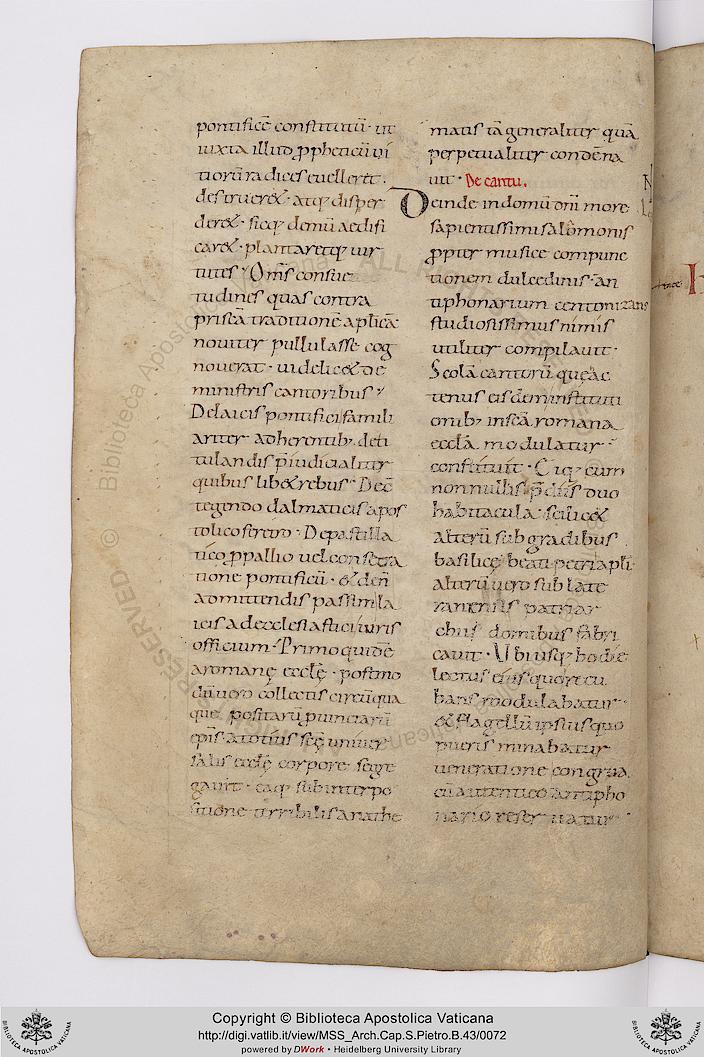 pontificē constitutū · ut
iuxta illud ꝓpheticū ui
tiorū radices euelleret ·
destruer& · atq; disper
der& · sicq; demū aedifi
car& · plantaretq; uir
tutes · Om̄s consue
tudines quas contra
priscā traditionē aplicā
nouiter pullulasse cog
nouerat · uidelic& de
ministris cantoribus ·
De laicis pontifici famili
ariter adherentib; de ti
tulandis p̄iudicialiter
quibus lib& rebus · De c̄
tegendo dalmaticis apos
tolico feretro · De pastilla
tico ꝓ pallio uel consecra
tione pontificū · & de n̄
admittendis passim la
icis ad ecclesiastici iuris
officium · Primo quidē
a romanę ecclę̄ · postmo
dū uero collectis circūqua
que positarū ꝓuinciarū
ep̄is a totius sc̄ę uniuer
salis ecclę̄ corpore segre
gauit · eaq; sub interpo
sitione terribilis anathe
matis tā generaliter quā
perpetualiter condēna
uit · De cantu.
Deinde in domū dn̄i more
sapientissimi salomonis
ꝓpter musice compunc
tionem dulcedinis · an
tiphonarium centonizans
studiosissimus nimis
utiliter compilauit ·
Scolā cantorū quę ac
tenus eisdem instituti
onib; in sc̄a romana
eccl̄a modulatur
constituit · Eiq; cum
nonnullis p̄diis duo
habitacula · scilic&
alterū sub gradibus
basilicę beati petri apl̄i
alterū uero sub late
ranensis patriar
chii domibus fabri
cauit · Ubi usq; hodie
lectus eius quo recu
bans modulabatur
& flagellū ipsius quo
pueris minabatur
ueneratione congrua
cū autentico antipho
nario reseruatur
Copyright © Biblioteca Apostolica Vaticana
http://digi.vatlib.it/view/MSS_Arch.Cap.S.Pietro.B.43/0072
powered by DWork • Heidelberg University Library